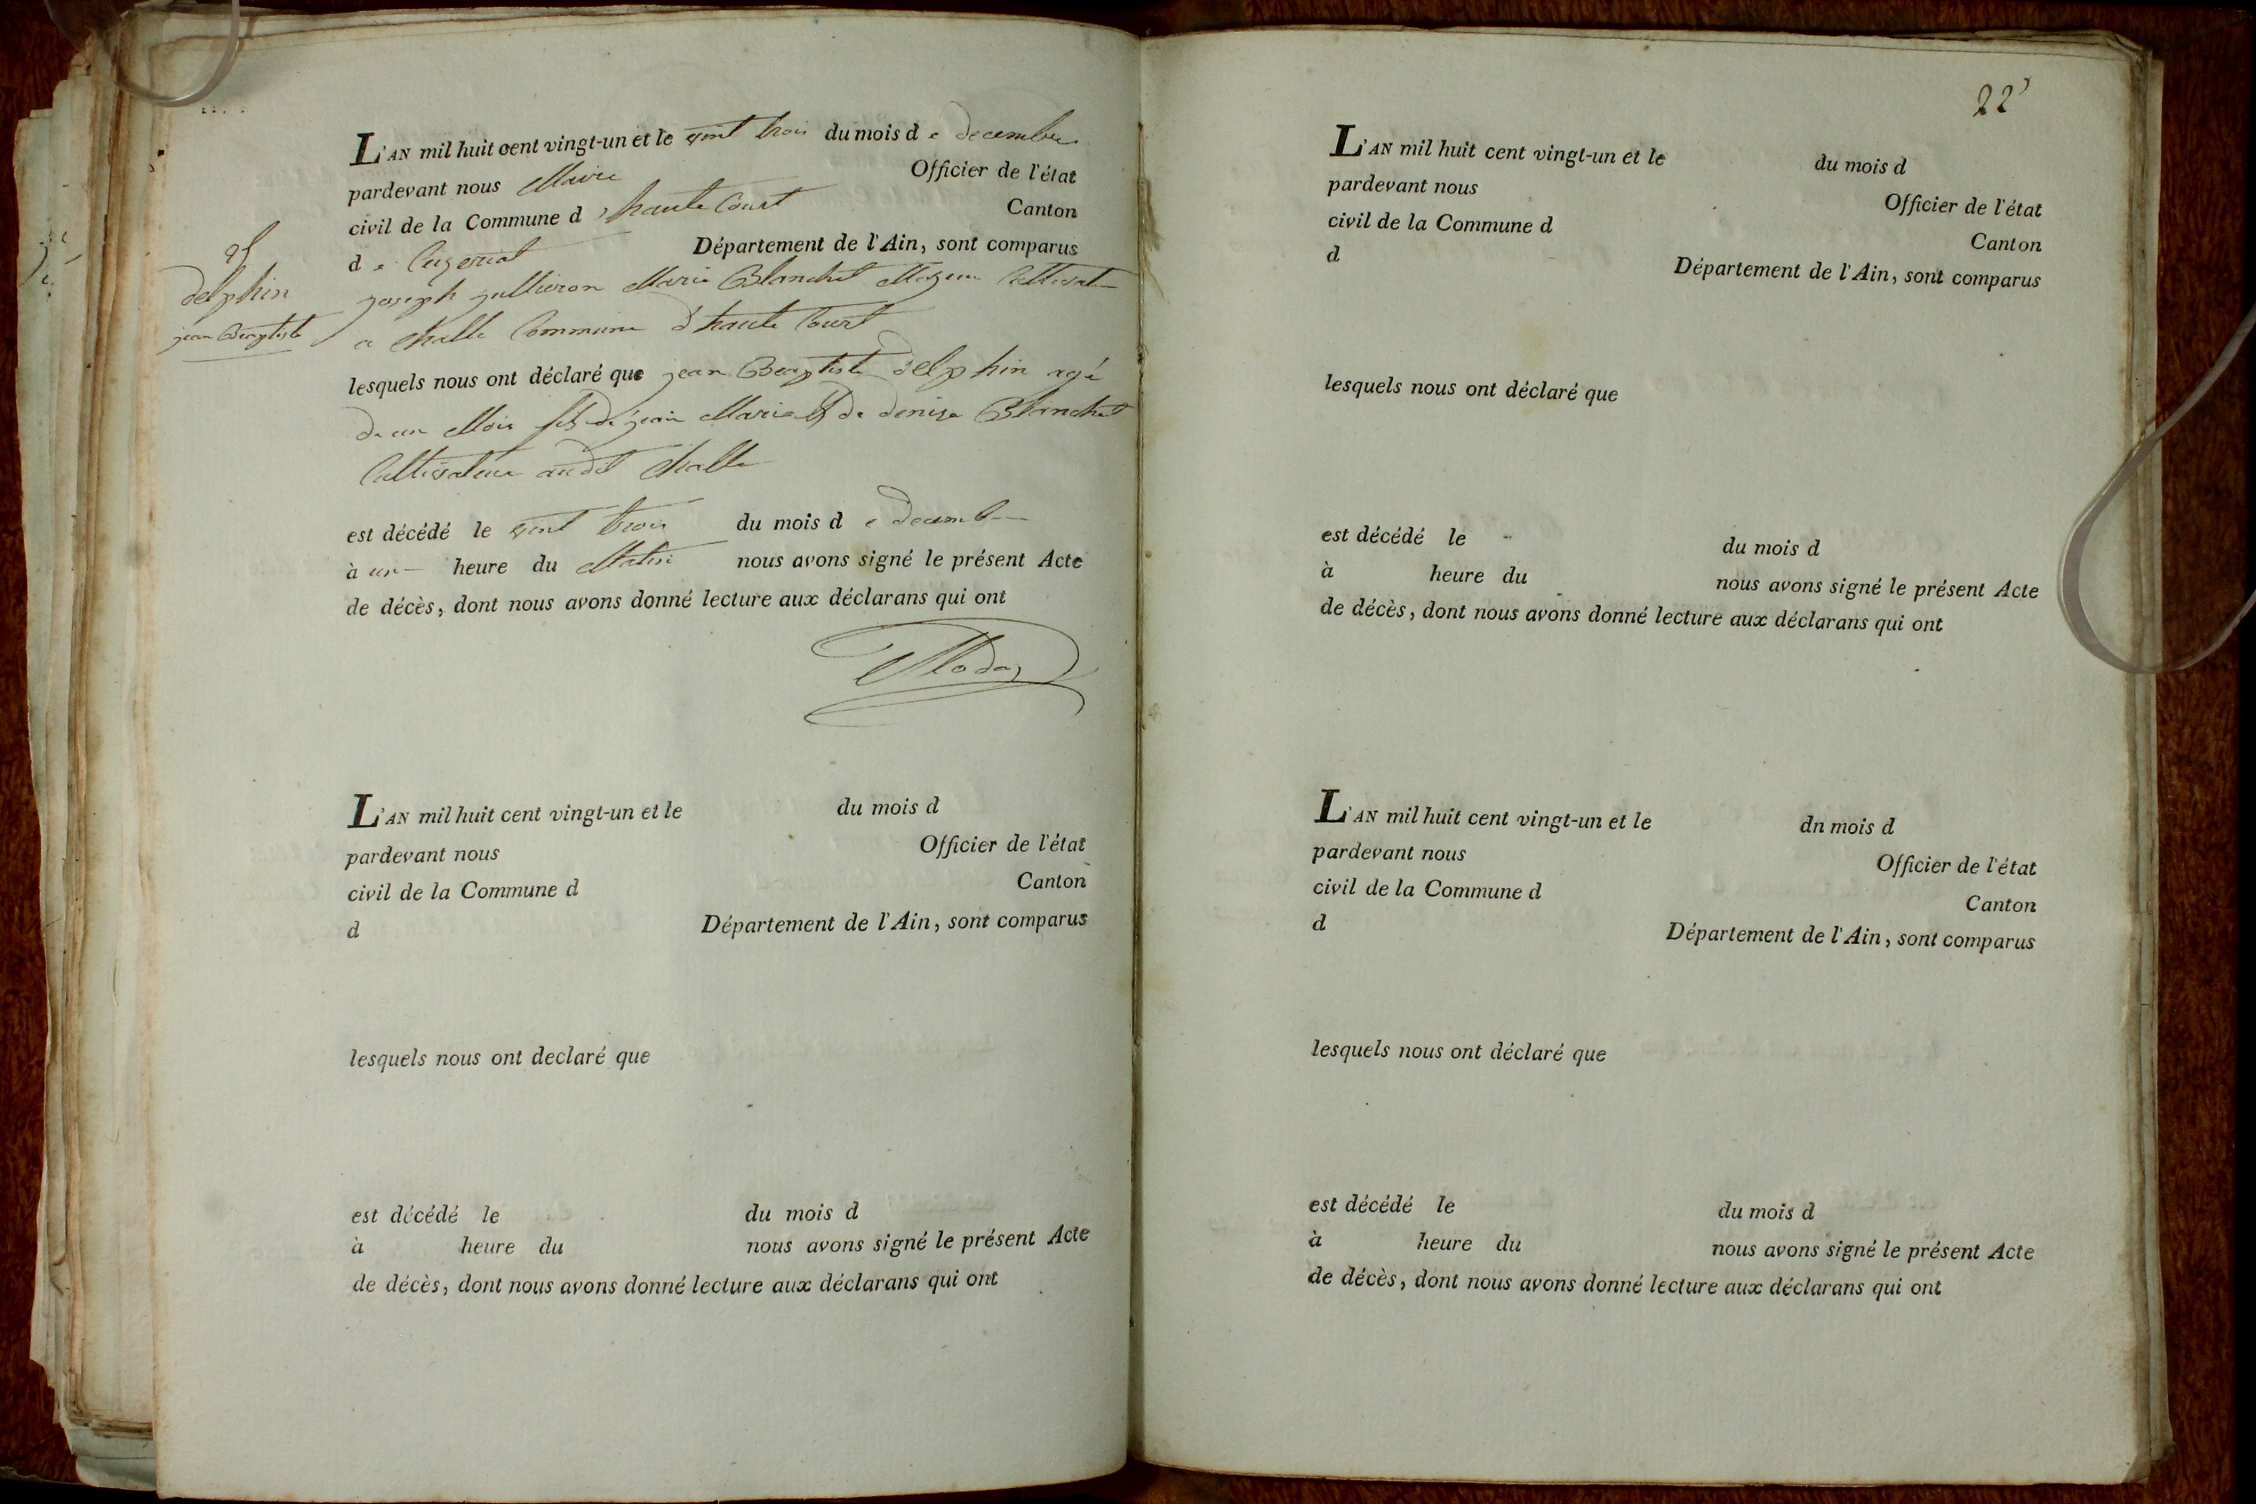 L'AN mil huit cent vingt-un et le vint trois du mois d e decembre
pardevant nous Maire Officier de l'état
civil de la Commune d haute Court Canton
d e Ceyzeriat Département de l'Ain, sont comparus
delphin
jean Baptiste
joseph jullieron Marie Blanchet Cultivat
a Challe Commune d haute Court
lesquels nous ont déclaré que jean Baptiste delphin agé
de un Mois fils de jean Marie & de denise Blanchet
Cultivateur au dit Challe
est décédé le vint trois du mois d e decemb
à un heure du Matin nous avons signé le présent Acte
de décès, dont nous avons donné lecture aux déclarans qui ont
L'AN mil huit cent vingt-un et le du mois d
pardevant nous Officier de l'état
civil de la Commune d Canton
d Département de l'Ain, sont comparus
lesquels nous ont declaré que
est décédé le du mois d
à heure du nous avons signé le présent Acte
de décès, dont nous avons donné lecture aux déclarans qui ont
22
L'AN mil huit cent vingt-un et le du mois d
pardevant nous Officier de l'état
civil de la Commune d Canton
d Département de l'Ain, sont comparus
lesquels nous ont déclaré que
est décédé le du mois d
à heure du nous avons signé le présent Acte
de décès, dont nous avons donné lecture aux déclarans qui ont
L'AN mil huit cent vingt-un et le dn mois d
pardevant nous Officier de l'état
civil de la Commune d Canton
d Département de l'Ain, sont comparus
lesquels nous ont déclaré que
est décédé le du mois d
à heure du nous avons signé le présent Acte
de décès, dont nous avons donné lecture aux déclarans qui ont